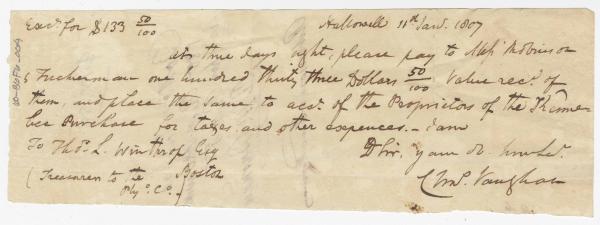 Exc.ᵉ for $133 50/100 Hallowell 11th Jan.y 1807
at three days sight, please pay to Messrs Robinson
& Tuckerman one hundred thirty three Dollars 50/100 Value rec.d of
them, and place the same to acc.t of the Proprietors of the Kenne-
bec Purchase for taxes and other expences. – I am
To Tho.s L. Winthrop Esq D Sir, your ob. humSe.
(Treasurer to the Boston
Ply.o Co.) Cha.s Vaughan